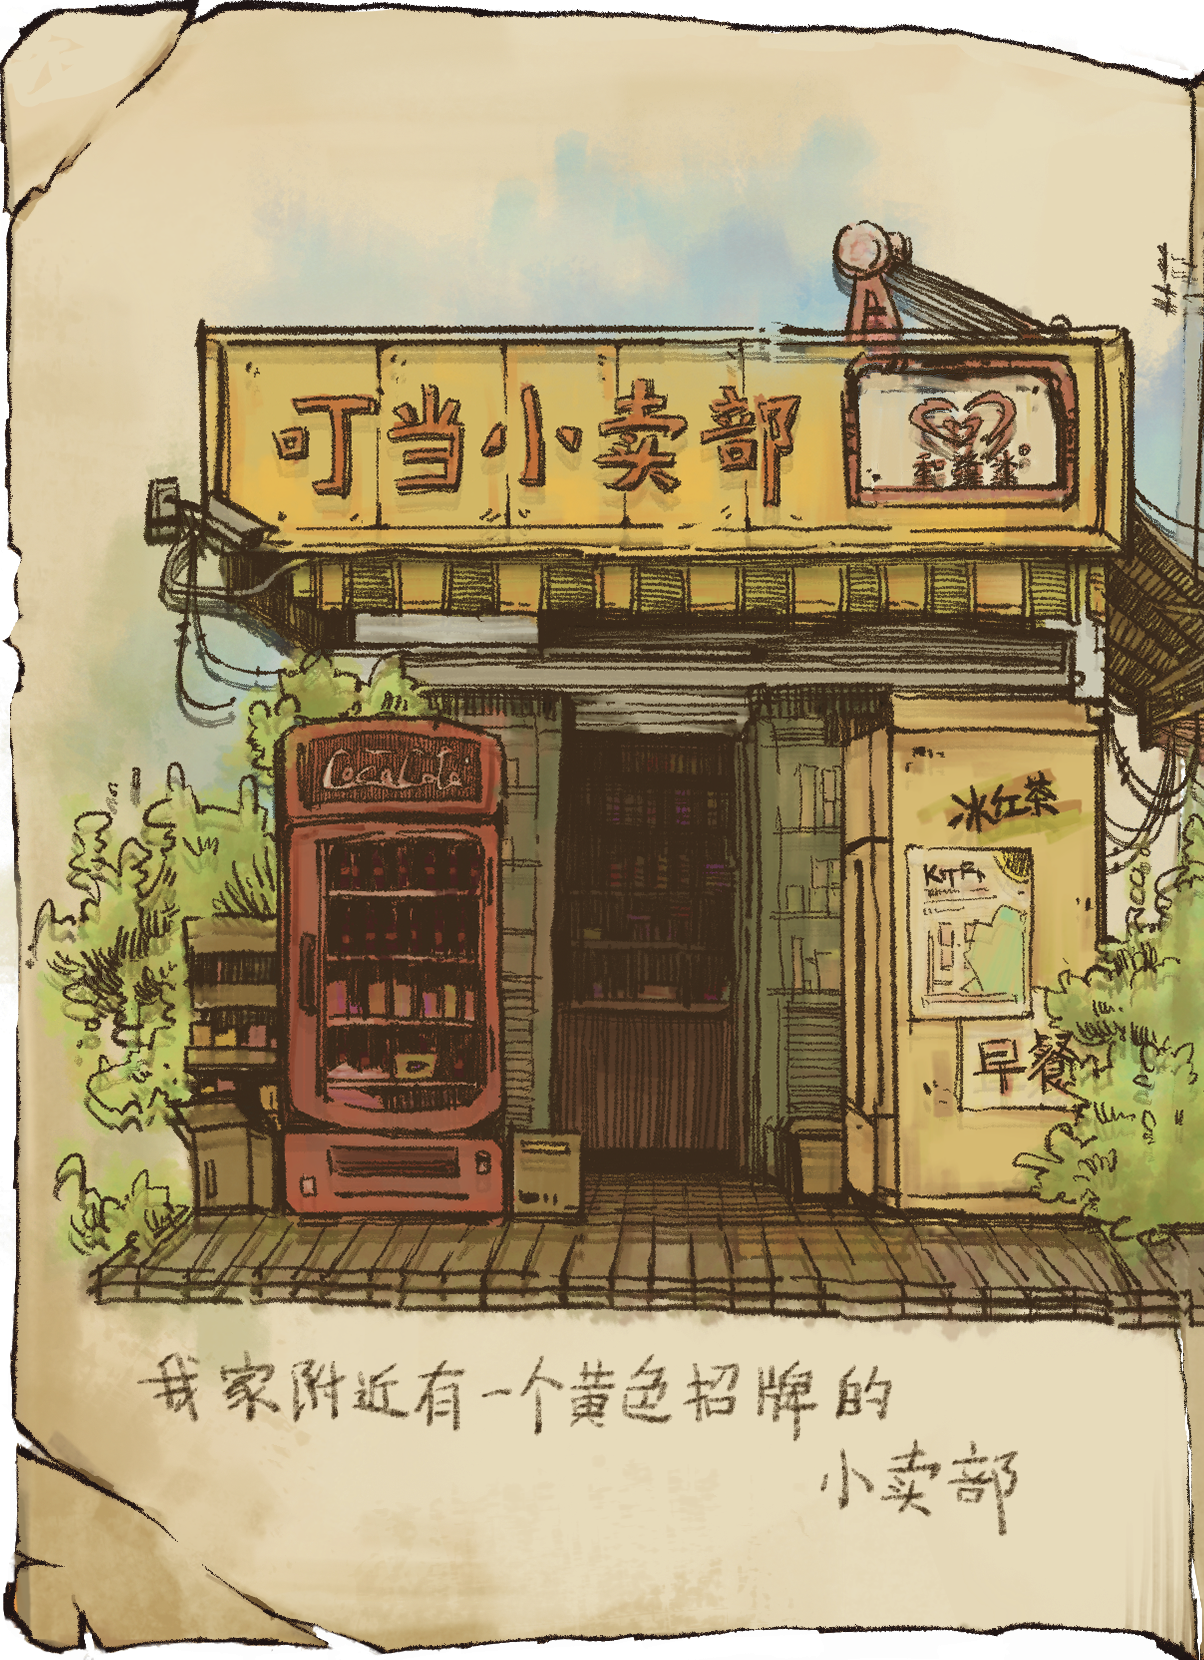 叮当小卖部
CocaCola
冰红茶
早餐
我家附近有一个黄色招牌的
小卖部